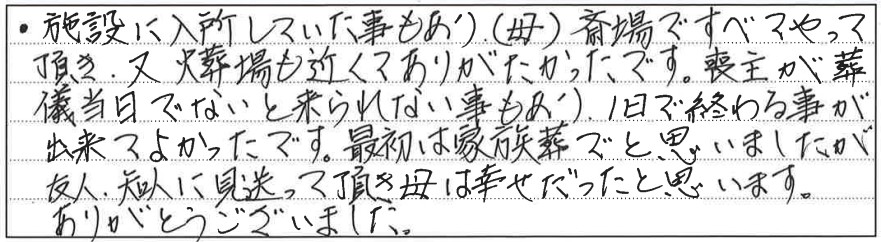 ・施設に入所していた事もあり、(母)斎場ですべてやって
頂き、又火葬場も近くてありがたかったです。喪主が葬
儀当日でないと来られない事もあり、1日で終わる事が
出来てよかったです。最初は家族葬でと思いましたが
友人、知人に見送って頂き母は幸せだったと思います。
ありがとうございました。